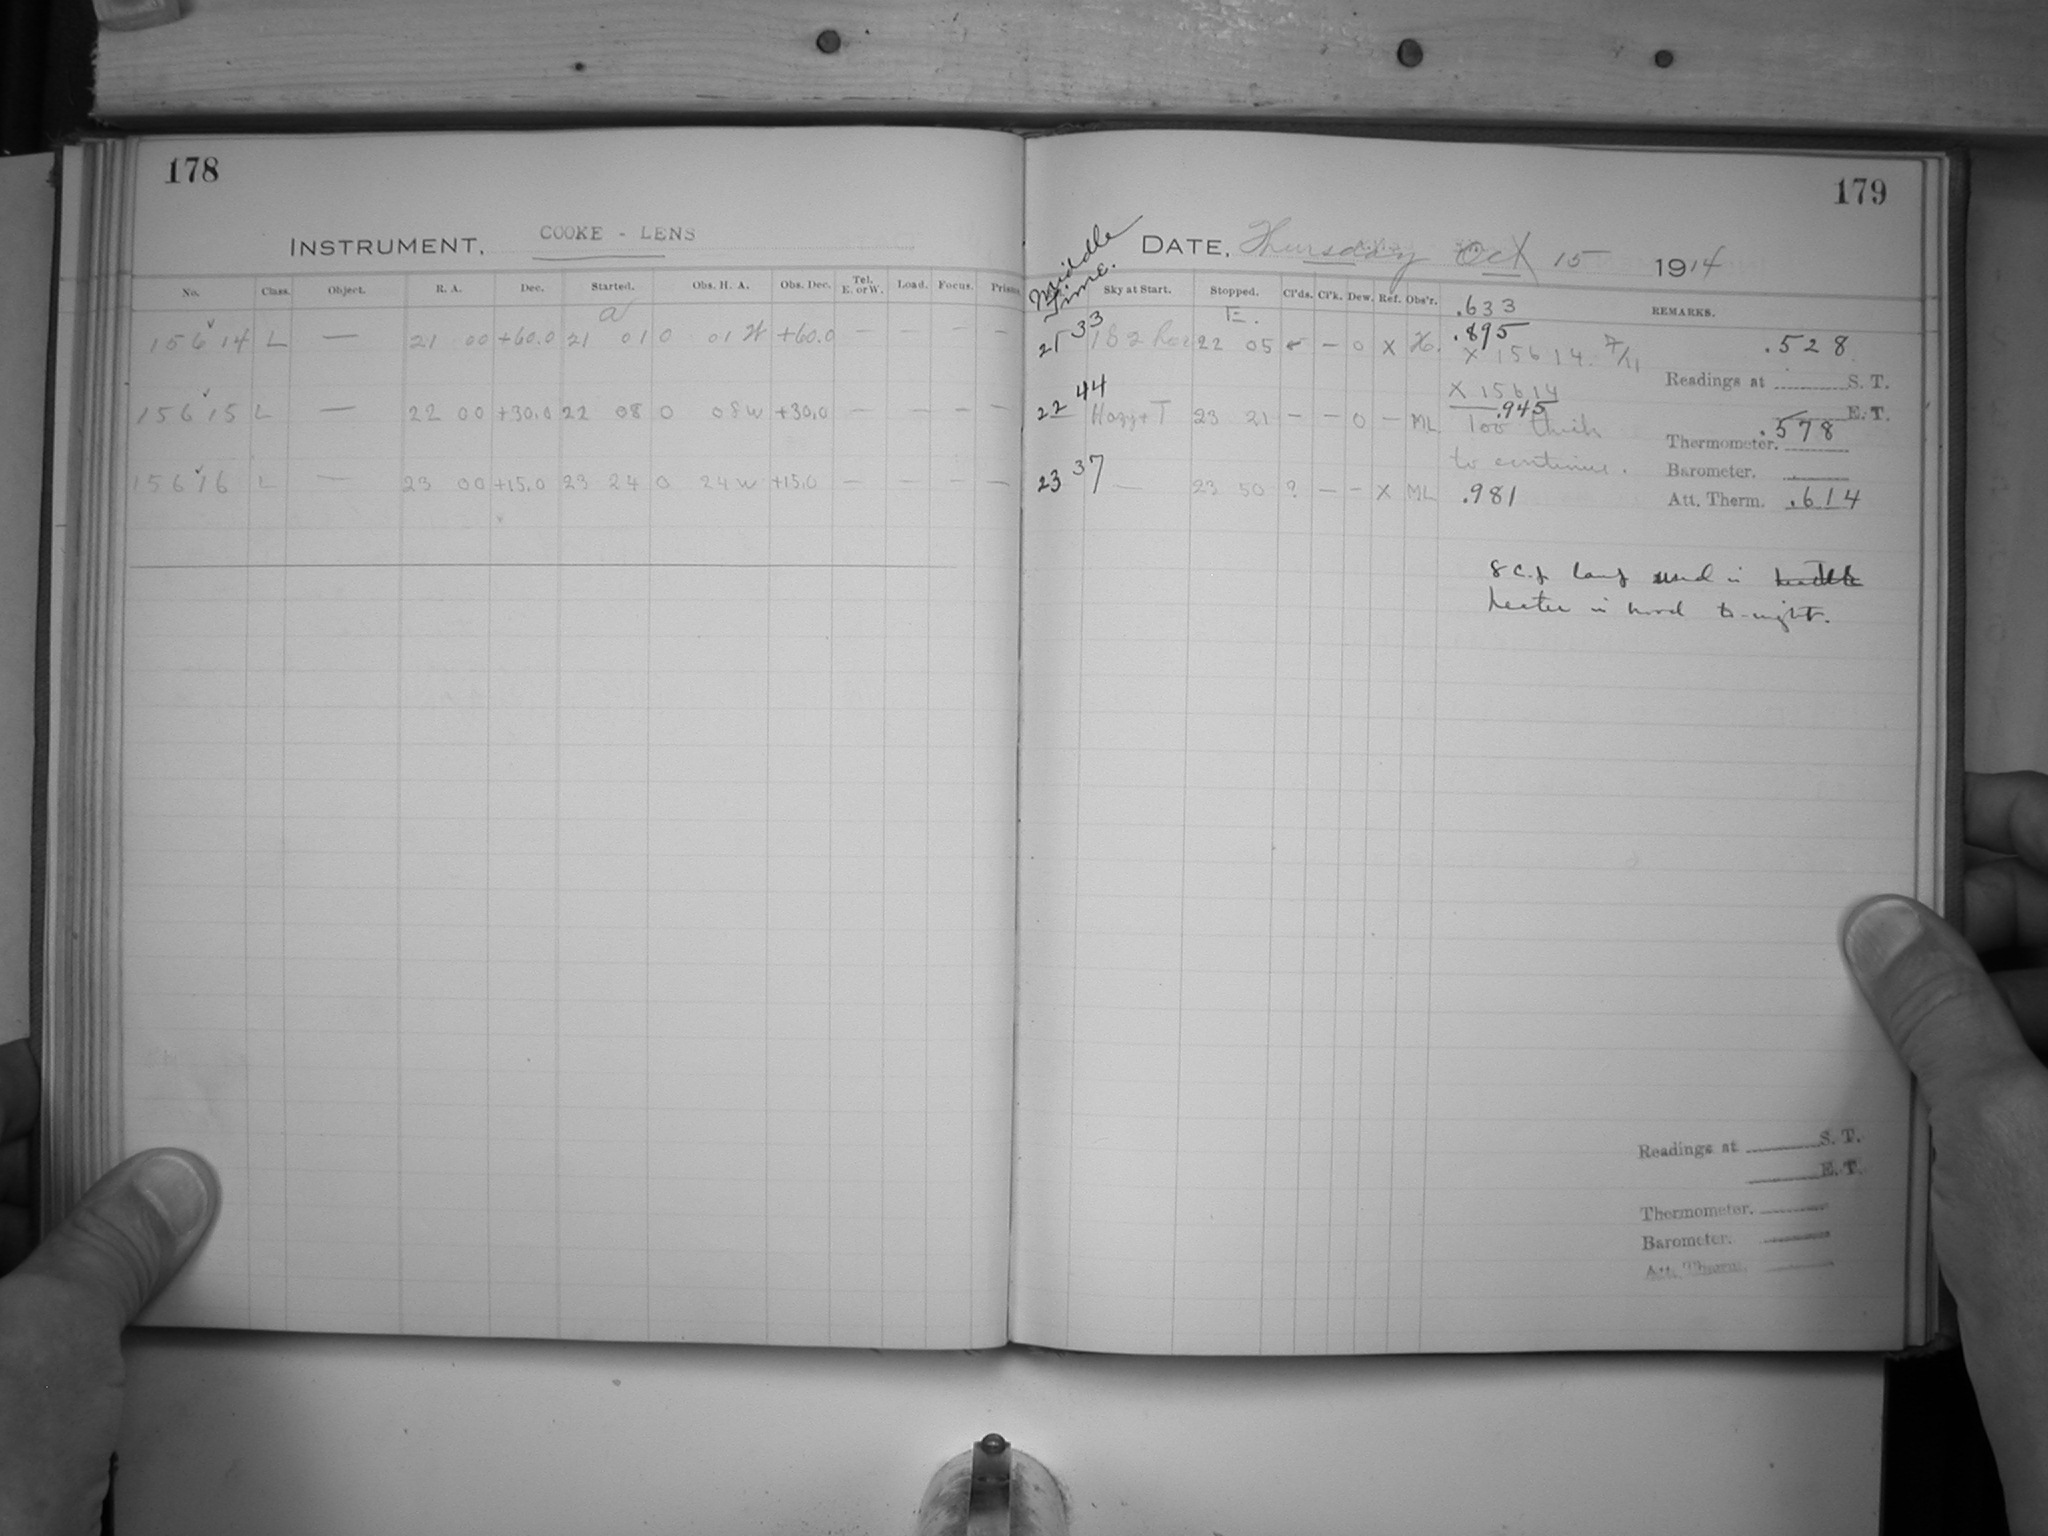 178
INSTRUMENT, COOKE - LENS
No. Class. Object. R. A. Dec. Started. Obs. H. A. Obs. Dec. Tel. E. or W. Load. Focus. Prisms
a
15614 L — 21 00 +60.0 21 01 0 01 W +60.0 — — — —
15615 L — 22 00 +30.0 22 08 0 08 W +30.0 — — — —
15616 L — 23 00 +15.0 23 24 0 24 W +15.0 — — — —
179
Middle Time.
DATE, Thursday Oct 15 1914
Sky at Start. Stopped. Cl'ds. Cl'k. Dew. Ref. Obs'r. REMARKS.
.633
E.
21 33 22 05 — 0 X H. .895
X 15614 7/11 .528
Readings at S. T.
X 15614
22 44 Hazy + T 23 21 — — 0 — ML .945 E. T.
Too thick .578
Thermometer.
to continue. Barometer.
23 37 — 23 50 ? — — X ML .981 Att. Therm. .614
8 c.p. lamp used in
heater in hood to-night.
Readings at S. T.
E. T.
Thermometer.
Barometer.
Att. Therm.